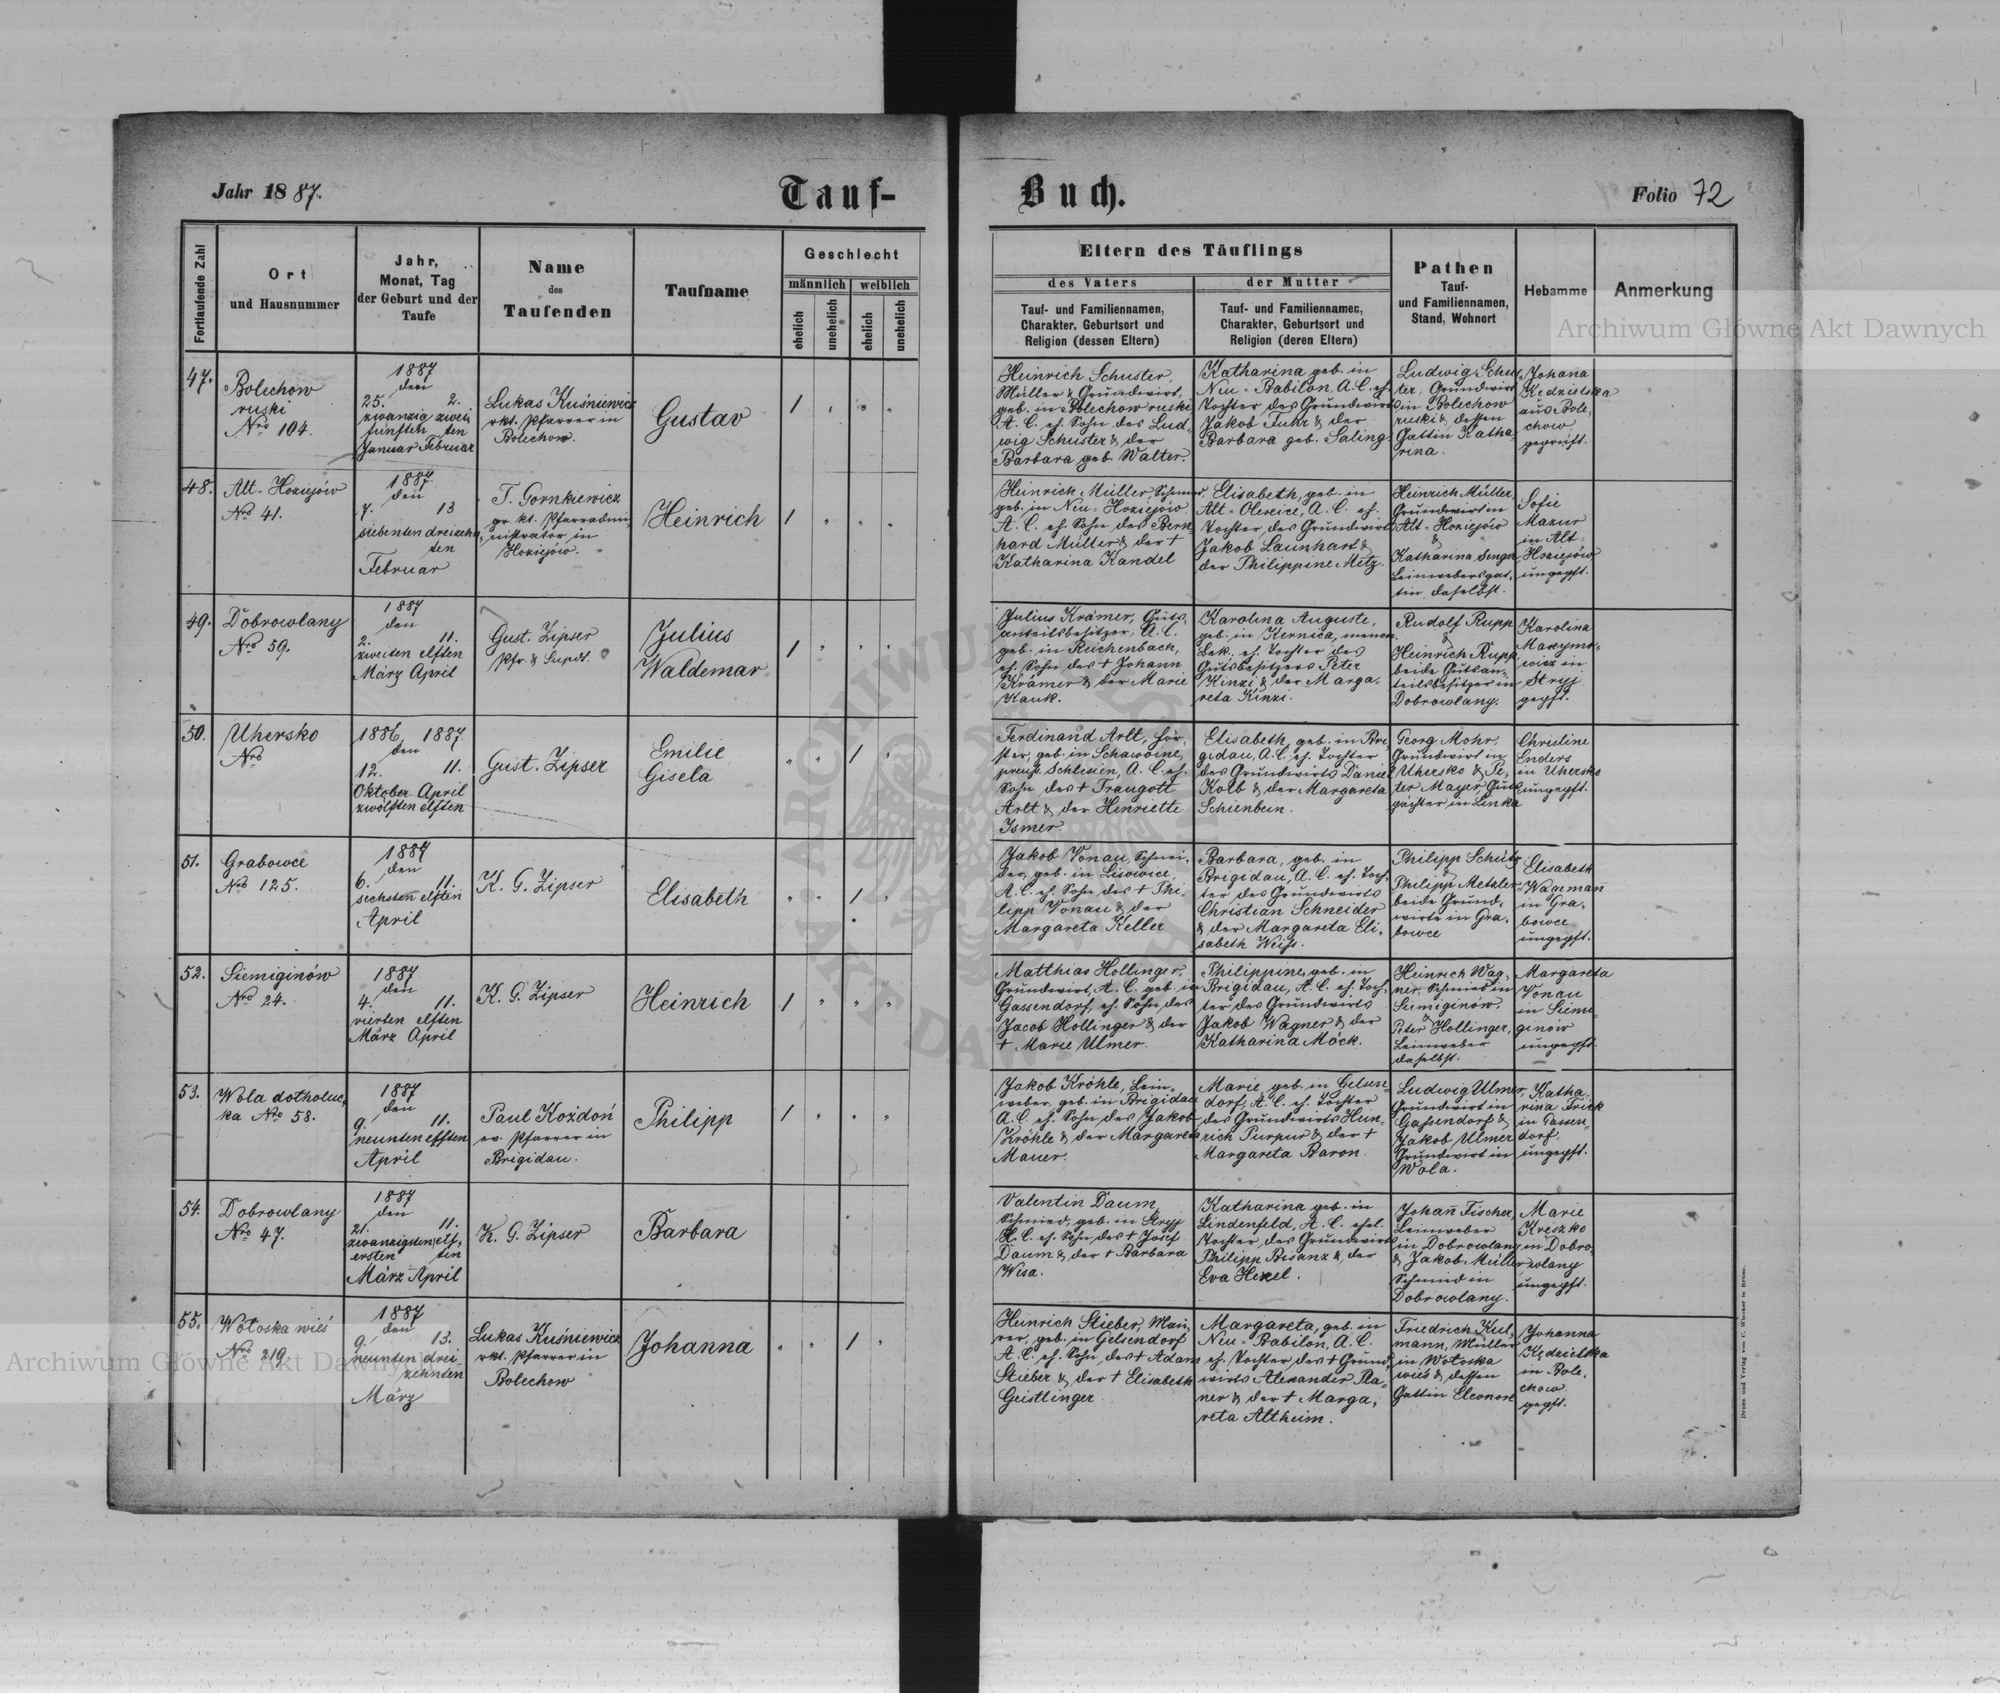 Jahr 1887.
Tauf-
Buch.
Folio 72
Fortlaufende Zahl
Ort
und Hausnummer
Jahr,
Monat, Tag
der Geburt und der
Taufe
Name
des
Taufenden
Taufname
Geschlecht
männlich
weiblich
ehelich
unehelich
ehelich
unehelich
Eltern des Täuflings
des Vaters
der Mutter
Tauf- und Familiennamen,
Charakter, Geburtsort und
Religion (dessen Eltern)
Tauf- und Familiennamen,
Charakter, Geburtsort und
Religion (deren Eltern)
Pathen
Tauf-
und Familiennamen,
Stand, Wohnort
Hebamme
Anmerkung
47.
Bolechow
ruski
Nro 104.
1887
den
25. 2.
zwanzig zwei
fünften ten
Januar Februar
Lukas Kuśniewicz
rkt. Pfarrer in
Bolechow.
Gustav
1 " " "
Heinrich Schuster,
Müller & Grundwirt,
geb. in Bolechow ruski
A. C. eh. Sohn des Lud-
wig Schuster & der
Barbara geb. Walter.
Katharina geb. in
Neu-Babilon, A. C. eh.
Tochter des Grundwirts
Jakob Fuhr & der
Barbara geb. Saling
Ludwig Schus
ter, Grundwirt
in Bolechow
ruski & dessen
Gattin Katha-
rina.
Johana
Kedzielska
aus Bole-
chow,
geprüft.
48.
Alt-Hoziejów
No 41.
1887.
den
7. 13
siebenten dreizehn
ten
Februar
T. Gornkiewicz
gr. kt. Pfarradmi-
nistrator in
Hoziejów.
Heinrich
1 " " "
Heinrich Müller, Schmied,
geb. in Neu-Hoziejów
A. C. eh. Sohn des Bern-
hard Müller & der †
Katharina Kandel
Elisabeth, geb. in
Alt-Oleксice, A. C. eh.
Tochter des Grundwirts
Jakob Launhart &
der Philippine Metz.
Heinrich Müller,
Grundwirt in
Alt-Hoziejów
&
Katharina Senger
Leinwebersgat-
tin daselbst.
Sofie
Mazur
in Alt-
Hoziejów
ungepft.
49.
Dobrowlany
Nro 59.
1887
den
2. 11.
zweiten elften
März April
Gust. Zipser
Pfr. & Supdt.
Julius
Waldemar
1 " " "
Julius Krämer, Guts-
anteilsbesitzer, A. C.
geb. in Reichenbach,
eh. Sohn des † Johann
Krämer & der Marie
Kauk.
Karolina Auguste,
geb. in Kernica, menon.
Bek. eh. Tochter des
Gutsbesitzers Peter
Kinzi & der Marga-
reta Kinzi.
Rudolf Rupp
&
Heinrich Rupp,
beide Gutsan-
teilsbesitzer in
Dobrowlany.
Karolina
Maxymo-
wicz in
Stryj
gepft.
50.
Uhersko
Nro
1886, 1887
den
12. 11.
Oktober April
zwölften elften
Gust. Zipser
Emilie
Gisela
" " 1 "
Ferdinand Arlt, För-
ster, geb. in Schawoine,
preuß. Schlesien, A. C. eh.
Sohn des † Traugott
Arlt & der Henriette
Ismer.
Elisabeth, geb. in Bri-
gidau, A. C. eh. Tochter
des Grundwirts Daniel
Kolb & der Margareta
Schienbein.
Georg Mohr,
Grundwirt in
Uhersko & Pe-
ter Mayer, Guts
pächter in Linka
Christine
Enders
in Uhersko
ungepft.
51.
Grabowce
Nro 125.
1887
den
6. 11.
sechsten elften
April
K. G. Zipser
Elisabeth
" " 1 "
Jakob Vonau, Schnei-
der, geb. in Lisowice,
A. C. eh. Sohn des † Phi-
lipp Vonau & der
Margareta Keller
Barbara, geb. in
Brigidau, A. C. eh. Toch-
ter des Grundwirts
Christian Schneider
& der Margareta Eli-
sabeth Weiß.
Philipp Schütz
&
Philipp Metzler
beide Grund-
wirte in Gra-
bowce
Elisabeth
Wagemann
in Gra-
bowce
ungepft.
52.
Siemiginów
Nro 24.
1887
den
4. 11.
vierten elften
März April
K. G. Zipser
Heinrich
1 " " "
Matthias Hollinger,
Grundwirt, A. C. geb. in
Gassendorf, eh. Sohn des
Jacob Hollinger & der
† Marie Ulmer.
Philippine, geb. in
Brigidau, A. C. eh. Toch-
ter des Grundwirts
Jakob Wagner & der
Katharina Möck.
Heinrich Wag-
ner, Schmied in
Siemiginów
&
Peter Hollinger,
Leinweber
daselbst.
Margareta
Vonau
in Siemi-
ginów
ungepft.
53.
Wola dołholuc-
ka Nro 58.
1887
den
9. 11.
neunten elften
April
Paul Kożdoń
ev. Pfarrer in
Brigidau.
Philipp
1 " " "
Jakob Kröhle, Lein-
weber, geb. in Brigidau
A. C. eh. Sohn des Jakob
Kröhle & der Margareta
Mauer.
Marie, geb. in Gelsen-
dorf, A. C. eh. Tochter
des Grundwirts Hein-
rich Purpur & der †
Margareta Baron
Ludwig Ulmer,
Grundwirt in
Gassendorf &
Jakob Ulmer
Grundwirt in
Wola.
Katha-
rina Frick
in Gassen-
dorf,
ungepft.
54.
Dobrowlany
Nro 47.
1887
den
21. 11.
zwanzigsten elf-
ersten ten
März April
K. G. Zipser
Barbara
Valentin Daum,
Schmied, geb. in Stryj
H. C. eh. Sohn des † Josef
Daum & der † Barbara
Wisa.
Katharina geb. in
Lindenfeld, A. C. ehel.
Tochter, des Grundwirts
Philipp Bisanz & der
Eva Hexel.
Johañ Fischer,
Leinweber
in Dobrowlany
& Jakob Müller
Schmied in
Dobrowlany.
Marie
Kreszko
in Dobro-
wlany
ungepft.
55.
Wołoska wieś
Nro 219
1887
den
9. 13.
neunten drei-
zehnten
März
Lukas Kuśniewicz
rkt. Pfarrer in
Bolechow
Johanna
" " 1 "
Heinrich Stieber, Mau-
rer, geb. in Gelsendorf
A. C. eh. Sohn, des † Adam
Stieber & der † Elisabeth
Geistlinger.
Margareta, geb. in
Neu-Babilon, A. C.
eh. Tochter des † Grund-
wirts Alexander Pla-
ner & der † Marga-
reta Altheim.
Friedrich Kul-
mann, Müller
in Wołoska
wieś & dessen
Gattin Eleonore
Johanna
Kędzielska
in Bole-
chow
gepft.
Druck und Verlag von C. Winiker in Brünn.
Archiwum Główne Akt Dawnych
Archiwum Główne Akt Dawnych